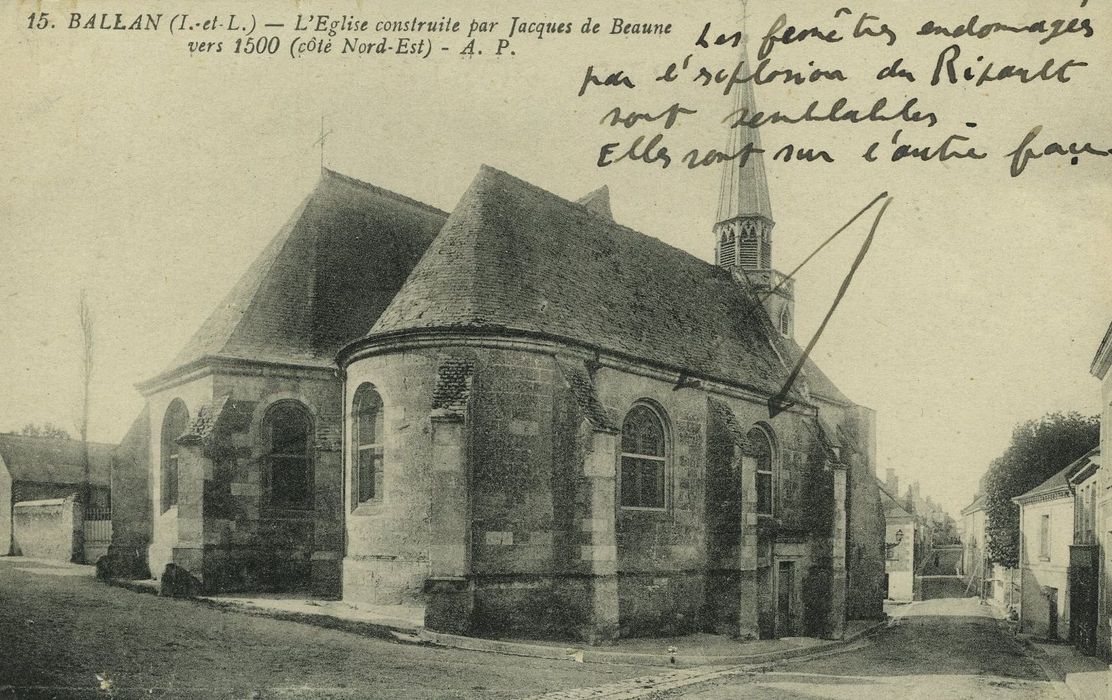 15. BALLAN (I.-et-L.) — L'Eglise construite par Jacques de Beaune
vers 1500 (côté Nord-Est) - A. P.
Les fenêtres endomagés
par l'explosion du Ripault
sont semblables.
Elles sont sur l'autre face